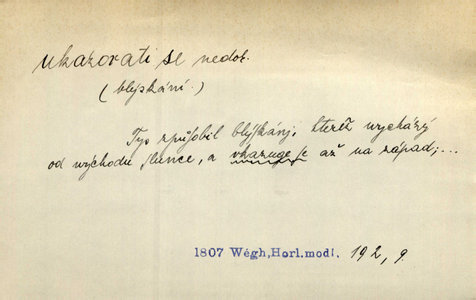 ukazovati se nedok.
(blýskání.)
Tys způsobil blýſkánj, kteréž wycházý
od východu ſlunce, a vkazuge ſe až na západ; ...
1807 Wégh,Horl.modl. 192, 9.